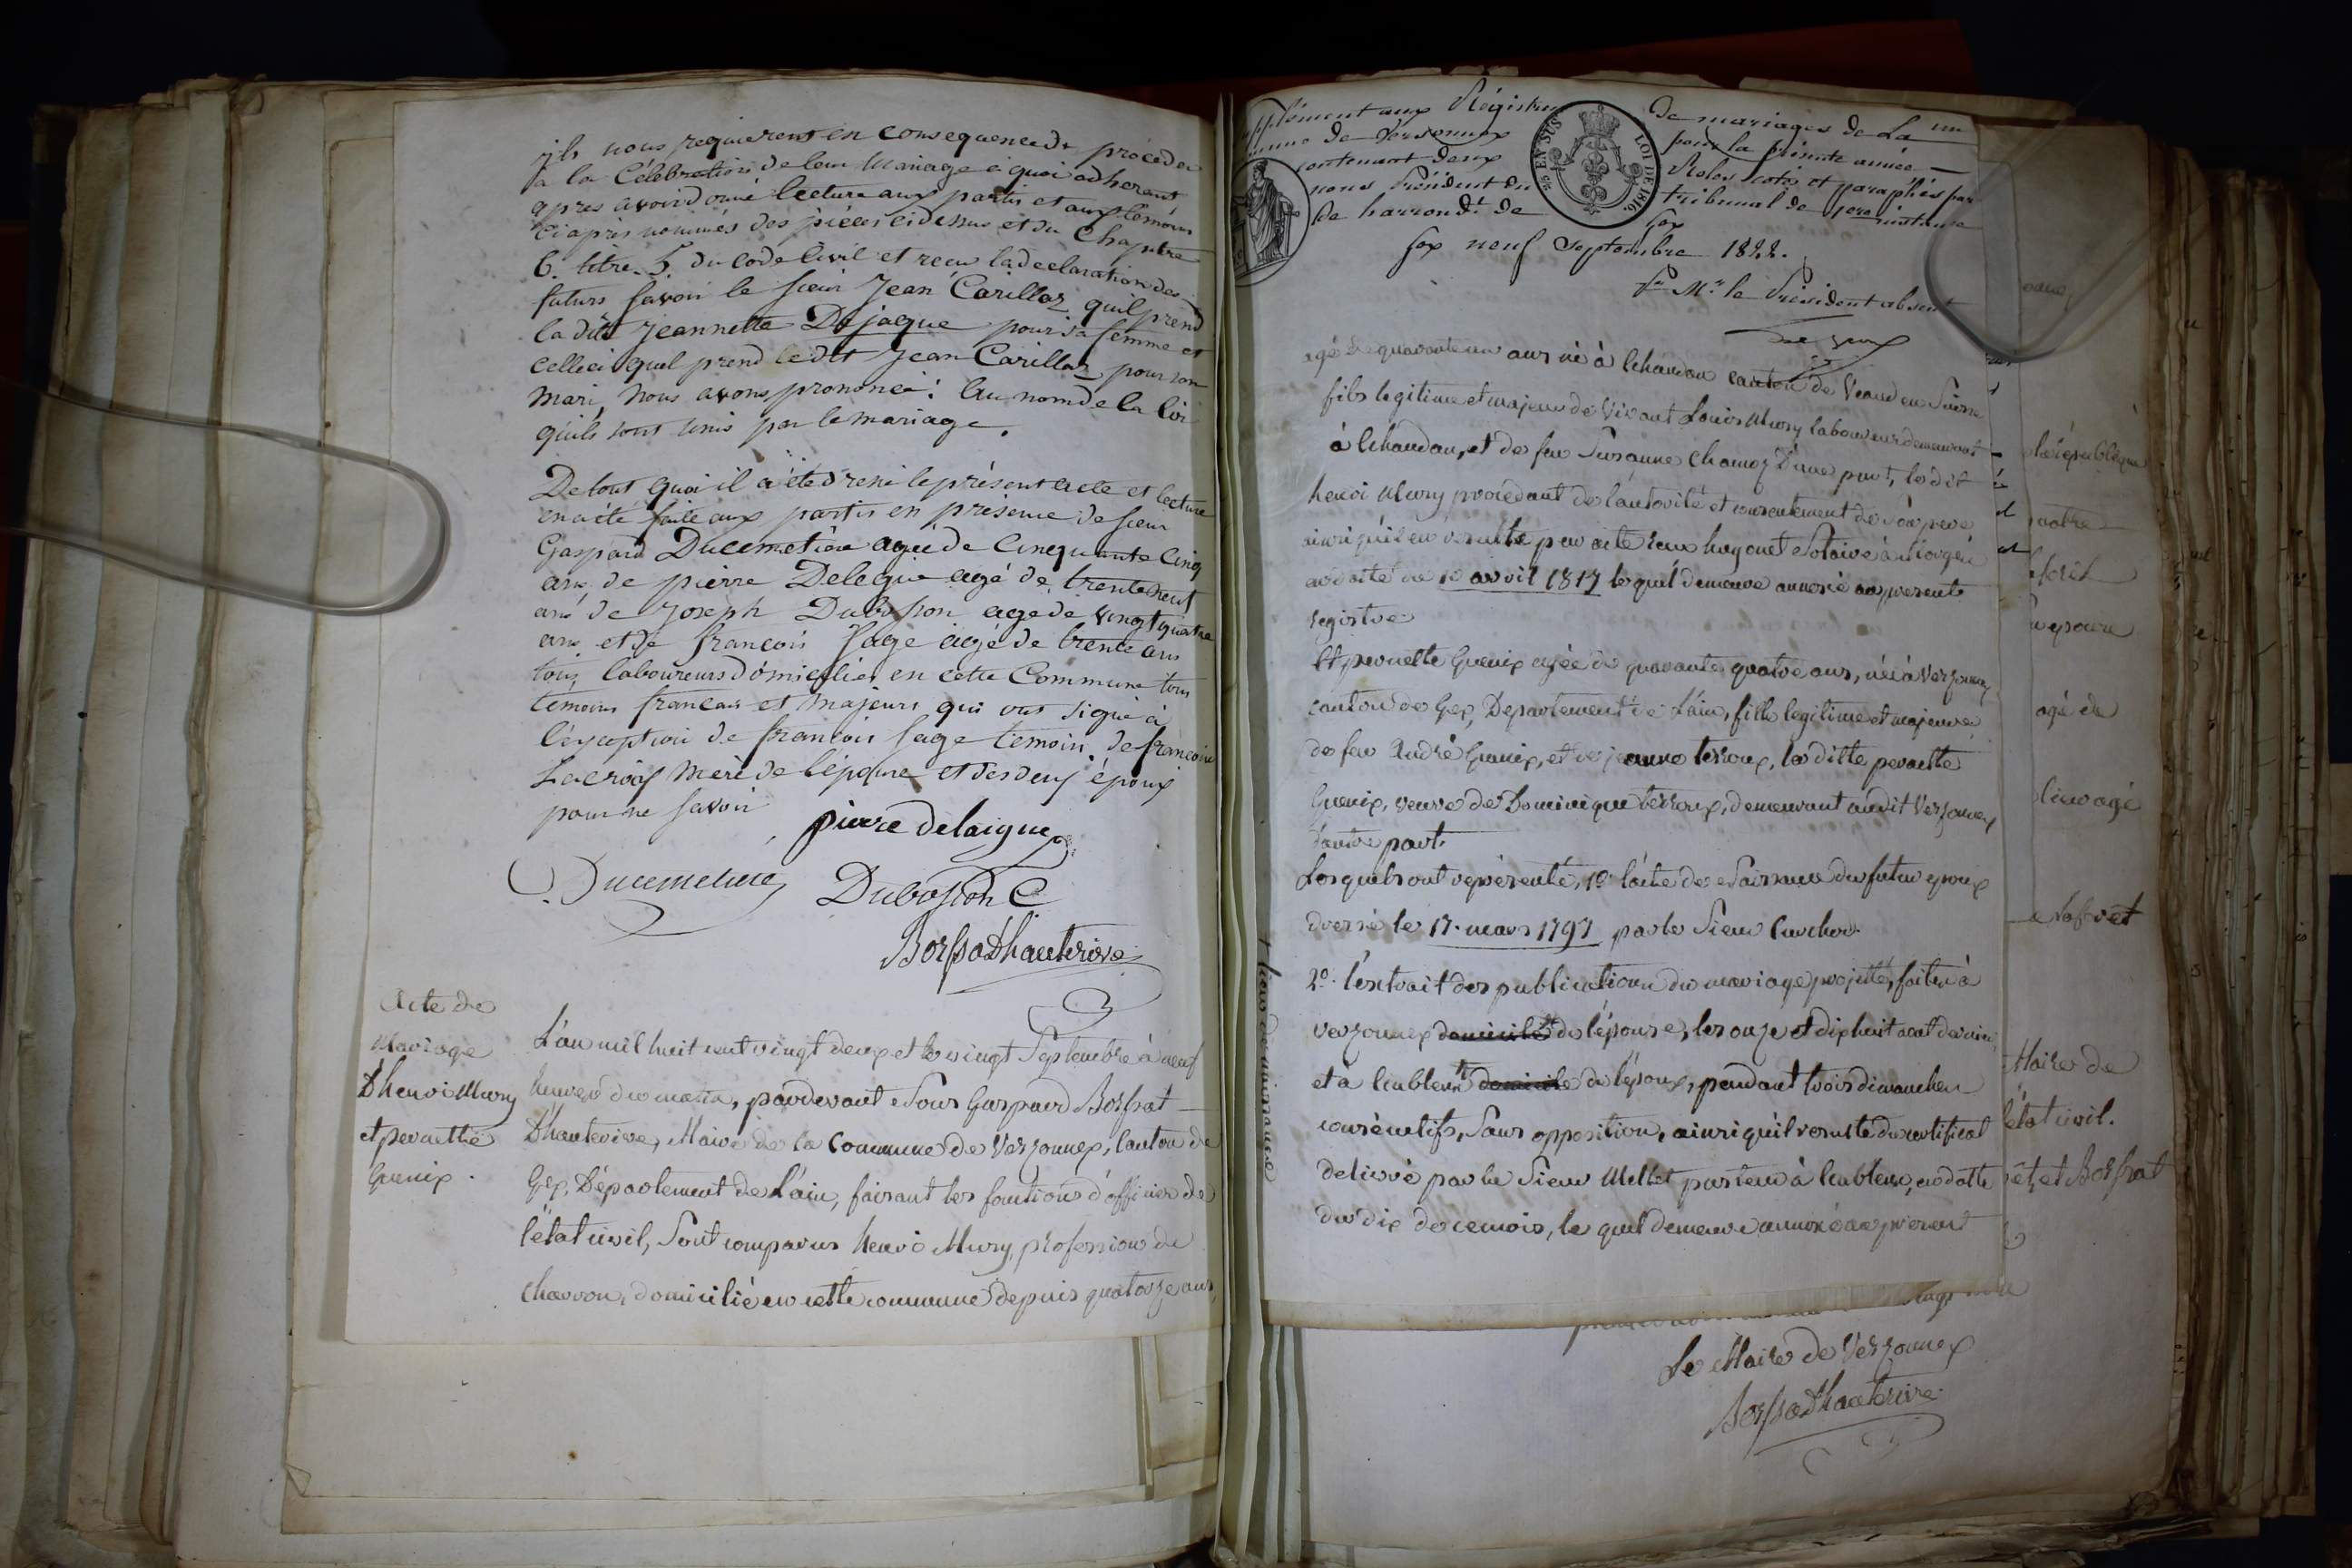 ils nous requierent en consequence de proceder
a la Célébration de leur Mariage a quoi adherent
apres avoir donné lecture aux partis et aux temoins
ci après nommés des pièces cidessus et du Chapitre
6. titre 5. du code Civil et recu la declaration des
futurs savoir le sieur Jean Carillaz quil prend
la dite Jeannette Dejacque pour sa femme et
celleci quel prend ledit Jean Carillaz pour son
mari, Nous avons prononcé: Au nom de la loi
quils sont unis par le mariage.
De tout quoi il a été dressé le présent acte et lecture
en a été faite aux partis en présence de sieur
Gaspard Ducemetière agé de Cinquante Cinq
ans, de pierre Delegue agé de trente neuf
ans de Joseph Dubosson agé de vingt quatre
ans et de francois Sage agé de trente ans
tous laboureurs domicilies en cette Commune tous
témoins francais et majeurs qui ont signé à
l'éxception de francois Sage témoin, de francoise
Lacroix mere de l'épouse et des deux époux
pour ne savoir
pierre delaigue
Ducemetiere Dubosson C
BorssaDhauterive
Acte de
Mariage
D'henri Mury
et pernette
Guenix.
L'an mil huit cent vingt deux et le vingt Septembre à neuf
heures du matin, pardevant Nous Gaspard Borssat
D'hauterive, Maire de la Commune de Verzonnex, Canton de
Gex, Département de L'ain, faisant les fonctions d'officier de
l'état civil, Sont comparus henri Mury, profession de
charron, domicilié en cette commune depuis quatorze ans,
Supplément aux Régistres de mariages de La
commune de Versonnex pour la présente année
contenant deux Roles cotés et paraphés par
nous Président du tribunal de 1ere instance
De l'arrond.t de Gex
Gex neuf Septembre 1822.
Pr Mr le Président absent
25 EN SUS LOI DE 1816.
agé de quarante un ans né à lchandon canton de Veaud en Suisse
fils legitime et majeur de vivant Louis Mury laboureur demeurant
à lchandon, et de feu Susanne Chamoz d'une part, le dit
henri Mury procédant de l'autorité et consentement de Son pere
ainsi quil en resulte par acte reçu hugonet Notaire à
en datte du 10 avril 1817 le quel demeure annexé au present
registre
Et pernette Guenix agée de quarante quatre ans, née à Verzonnex
canton de Gex, Departement de L'ain, fille legitime et majeure
de feu André Guenix, et de jeanne terroux, la ditte pernette
Guenix, veuve de Dominique terroux, demeurant audit Verzonnex
d'autre part.
Lesquels ont représenté, 1o l'acte de Naissance du futur epoux
dressé le 17. mars 1791 par le Sieur Curchod.
2o. l'extrait des publications du mariage projetté, faites à
verzonnex domicile de l'épouse, les onze et dix huit aout dernier,
et à domicile de l'époux, pendant trois dimanches
consécutifs, Sans opposition, ainsi quil resulte du certificat
delivré par le Sieur Mellet pasteur à, en datte
du dix de ce mois, le quel demeure annexé au present
lieu de naissance
notre
epouse
agé de
agé
Maire de
l'état civil.
et Borssat
Le Maire de Verzonnex
BorssaDhauterive